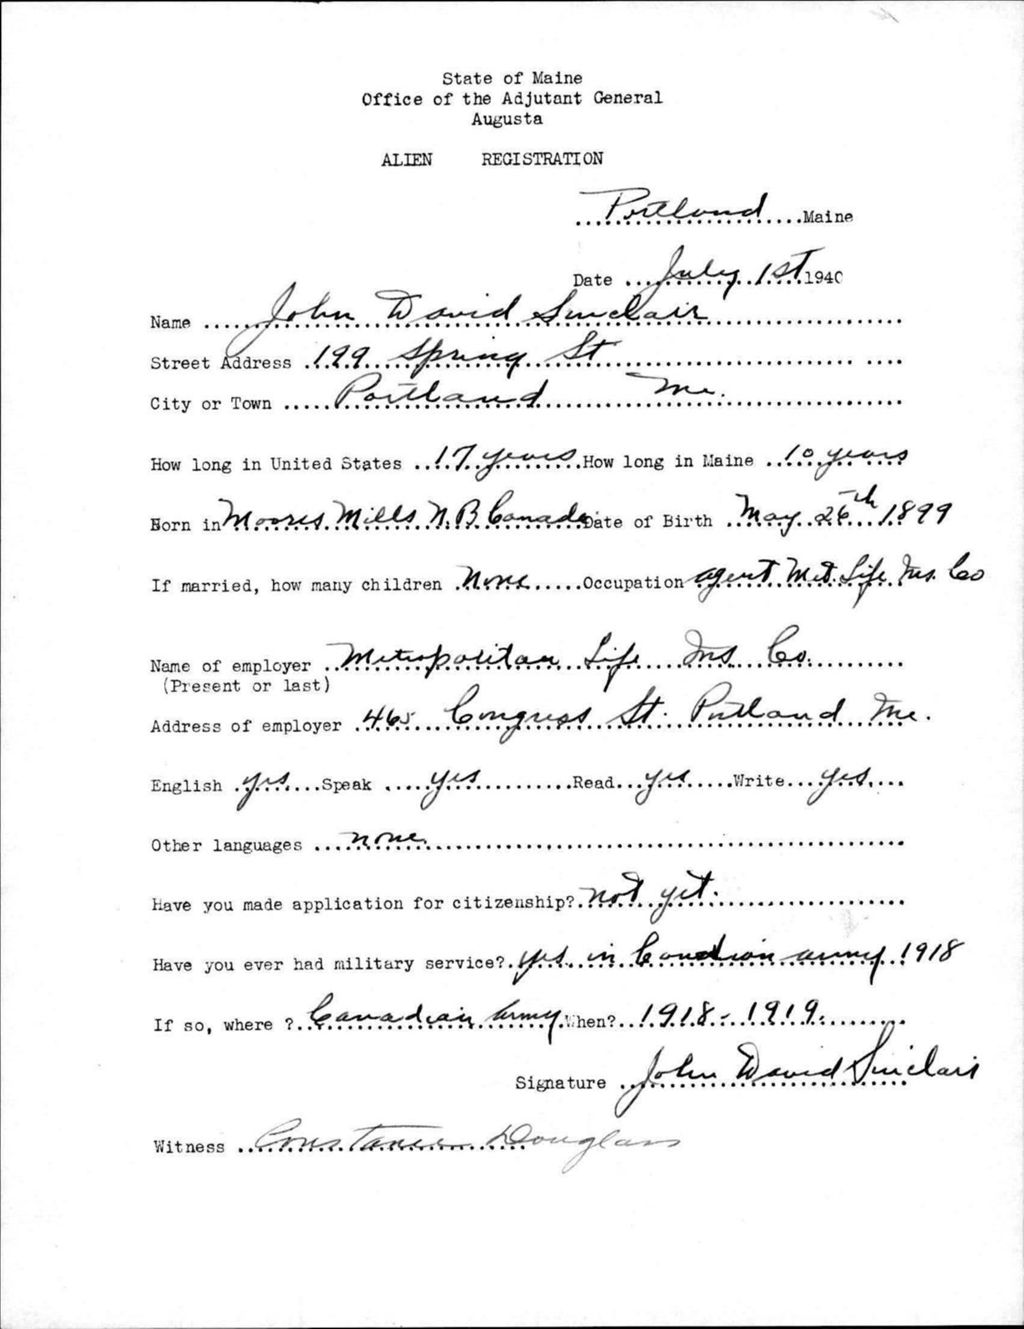 State of Maine
Office of the Adjutant General
Augusta
ALIEN REGISTRATION
Portland Maine
Date July 1st 1940
Name John David Sinclair
Street Address 199 Spring St
City or Town Portland Me.
How long in United States 17 years How long in Maine 10 years
Born in Moores Mills N.B. Canada Date of Birth May 26th 1899
If married, how many children None Occupation agent Met. Life Ins. Co
Name of employer Metropolitan Life Ins. Co.
(Present or last)
Address of employer 465 Congress St. Portland Me.
English yes Speak yes Read yes Write yes
Other languages none
Have you made application for citizenship? not yet.
Have you ever had military service? yes in Canadian army 1918
If so, where ? Canadian Army When? 1918-1919.
Signature John David Sinclair
Witness Constance Douglass